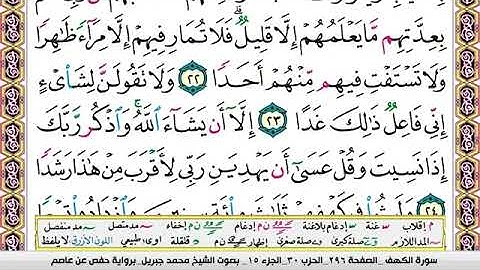 بِعِدَّتِهِم مَّا يَعْلَمُهُمْ إِلَّا قَلِيلٌ ۗ فَلَا تُمَارِ فِيهِمْ إِلَّا مِرَآءً ظَٰهِرًا
وَلَا تَسْتَفْتِ فِيهِم مِّنْهُمْ أَحَدًا ٢٢ وَلَا تَقُولَنَّ لِشَا۟ىْءٍ
إِنِّى فَاعِلٌ ذَٰلِكَ غَدًا ٢٣ إِلَّآ أَن يَشَآءَ ٱللَّهُ ۚ وَٱذْكُر رَّبَّكَ
إِذَا نَسِيتَ وَقُلْ عَسَىٰٓ أَن يَهْدِيَنِ رَبِّى لِأَقْرَبَ مِنْ هَٰذَا رَشَدًا
٢٤
م إقلاب غنة إدغام بلاغنة ن م إدغام ن م إخفاء مد متصل مد منفصل
المد اللازم صلة كبرى وصلة صغرى إظهار ن م قلقلة اوى: طبيعي اللون الأزرق لا يلفظ
سورة الكهف _الصفحة ٢٩٦_ الحزب ٣٠_الجزء ١٥_ بصوت الشيخ محمد جبريل_برواية حفص عن عاصم